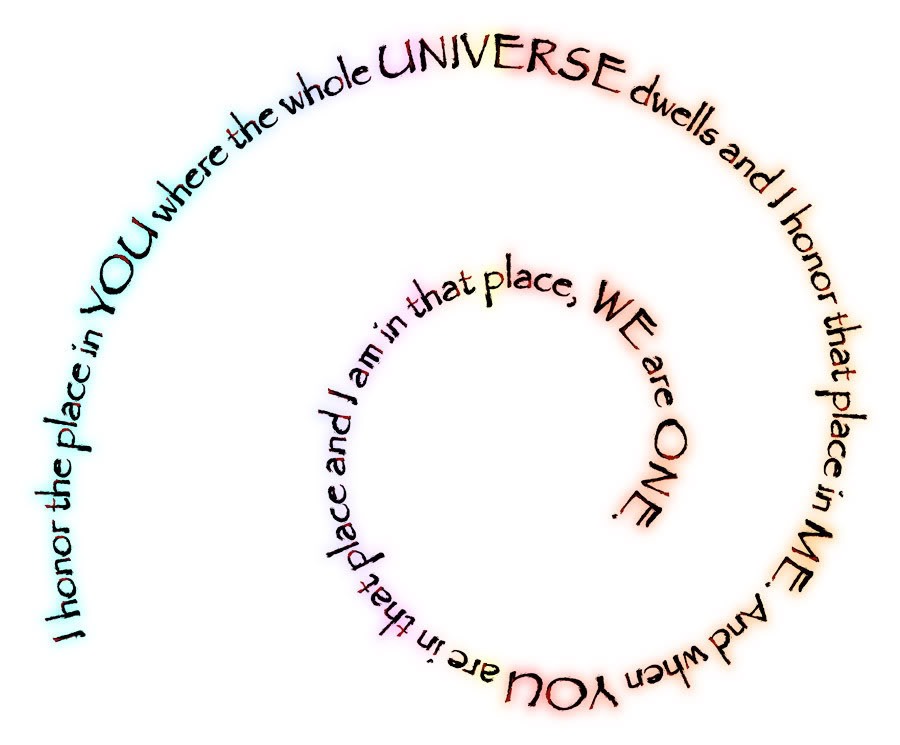 I honor the place in YOU where the whole UNIVERSE dwells and I honor that place in ME. And when YOU are in that place and I am in that place, WE are ONE.